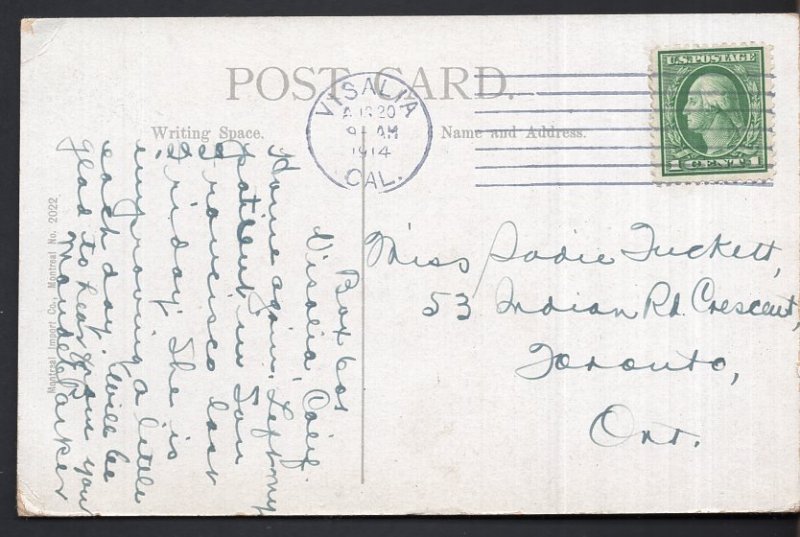 POST CARD.
Writing Space.
Name and Address.
VISALIA
AUG 20
9 AM
1914
CAL.
U.S. POSTAGE
1 CENT 1
Miss Sadie Tuckett,
53 Indian Rd. Crescent,
Toronto,
Ont.
Box 601
Visalia, Calif.
Home again, Left my
patient in San
Francisco last
Friday. She is
improving a little
each day. Will be
glad to hear from you
Maude Parker
Montreal Import Co., Montreal No. 2022